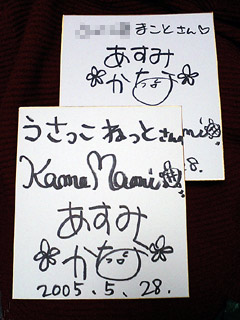 まことさん♡
あすみ
かな
mi
8.
うさっこねっとさん
Kame Mami
あすみ
かな
2005.5.28.